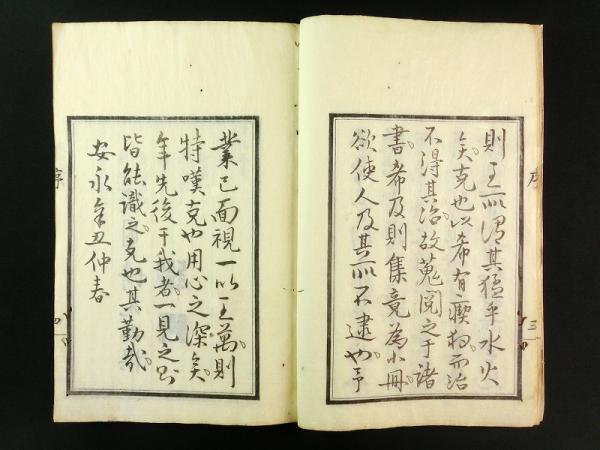 序
則王所謂其猛乎水火
矣克也以希有瘈狗而治
不得其治故蒐閲之于諸
書希及則集竟為小冊
欲使人及其所不逮也予
三
業已面視一以王萬則
特嘆克也用心之深矣
年先後于我者一見之則
皆能識之克也其勤哉
安永辛丑仲春
序
四